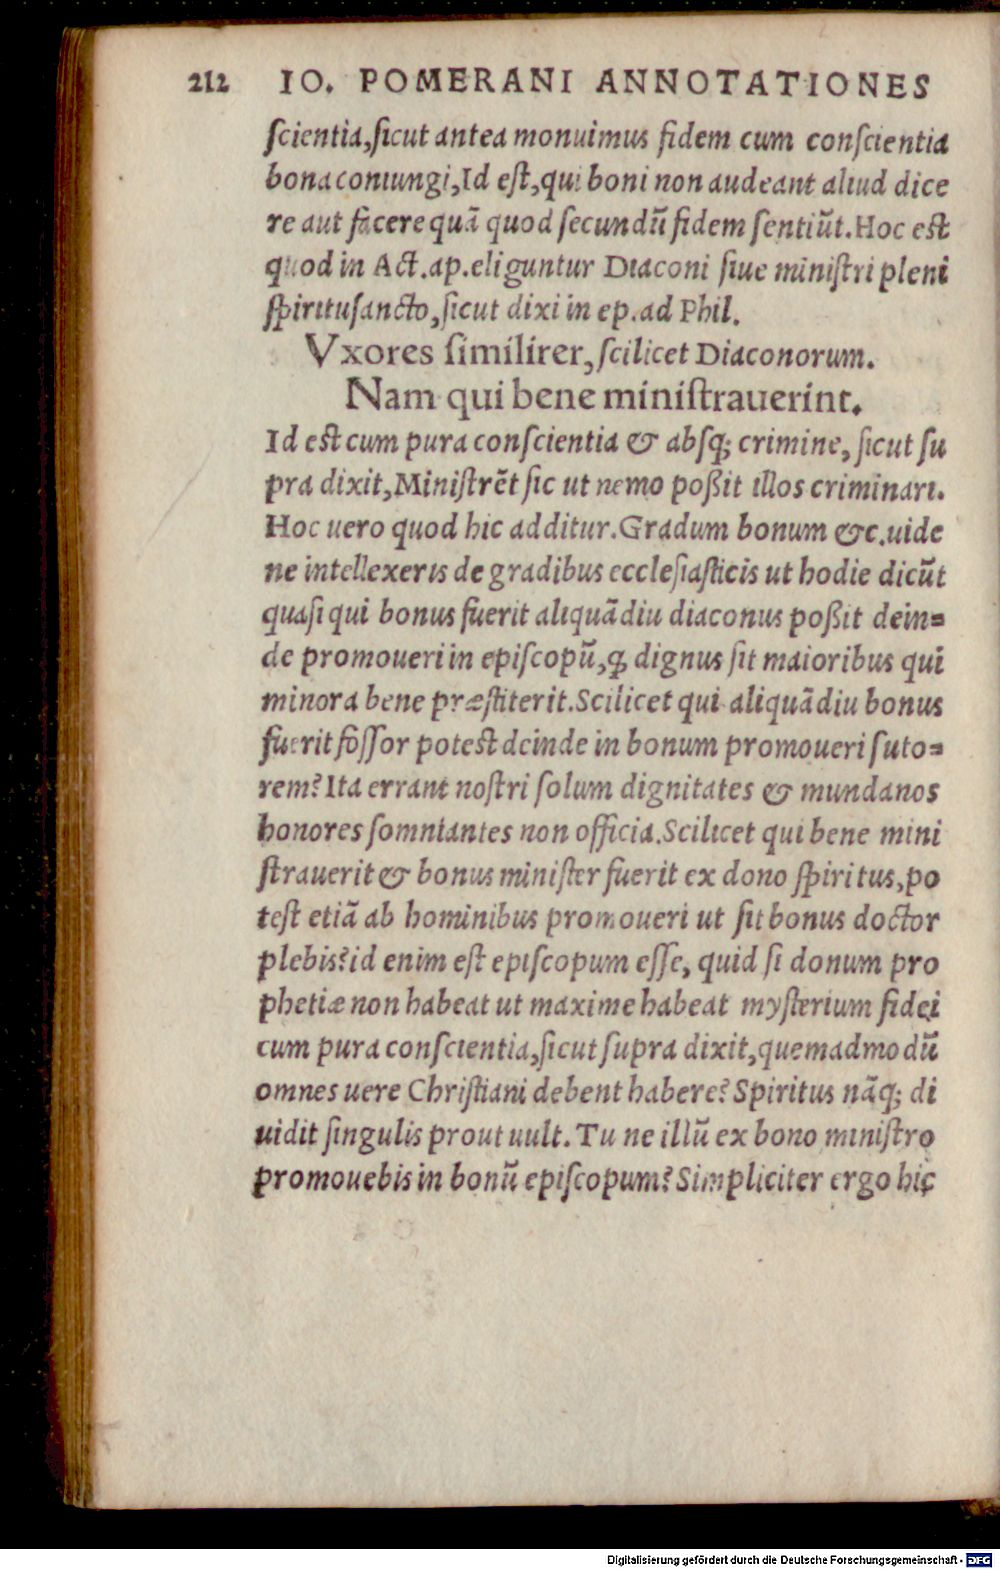 212 IO. POMERANI ANNOTATIONES
ſcientia,ſicut antea monuimus fidem cum conſcientia
bona coniungi,Id eſt,qui boni non audeant aliud dice
re aut facere quã quod ſecundũ fidem ſentiũt.Hoc eſt
quod in Act.ap.eliguntur Diaconi ſiue miniſtri pleni
ſpirituſancto,ſicut dixi in ep.ad Phil.
Vxores ſimilirer, ſcilicet Diaconorum.
Nam qui bene miniſtrauerint.
Id est cum pura conſcientia & abſq; crimine, ſicut ſu
pra dixit,Miniſtrẽt ſic ut nemo poßit illos criminari.
Hoc uero quod hic additur.Gradum bonum &c.uide
ne intellexeris de gradibus eccleſiaſticis ut hodie dicũt
quaſi qui bonus fuerit aliquãdiu diaconus poßit dein=
de promoueri in epiſcopũ,ꝙ dignus ſit maioribus qui
minora bene præſtiterit.Scilicet qui aliquãdiu bonus
fuerit foſſor potest deinde in bonum promoueri ſuto=
rem?Ita errant noſtri ſolum dignitates & mundanos
honores ſomniantes non officia.Scilicet qui bene mini
ſtrauerit & bonus miniſter fuerit ex dono ſpiritus,po
teſt etiã ab hominibus promoueri ut ſit bonus doctor
plebis?id enim eſt epiſcopum eſſe, quid ſi donum pro
phetiæ non habeat ut maxime habeat myſterium fidei
cum pura conſcientia,ſicut ſupra dixit,quemadmodũ
omnes uere Chriſtiani debent habere?Spiritus nãq; di
uidit ſingulis prout uult.Tu ne illũ ex bono miniſtro
promouebis in bonũ epiſcopum?Simpliciter ergo hic
Digitalisierung gefördert durch die Deutsche Forschungsgemeinschaft - DFG